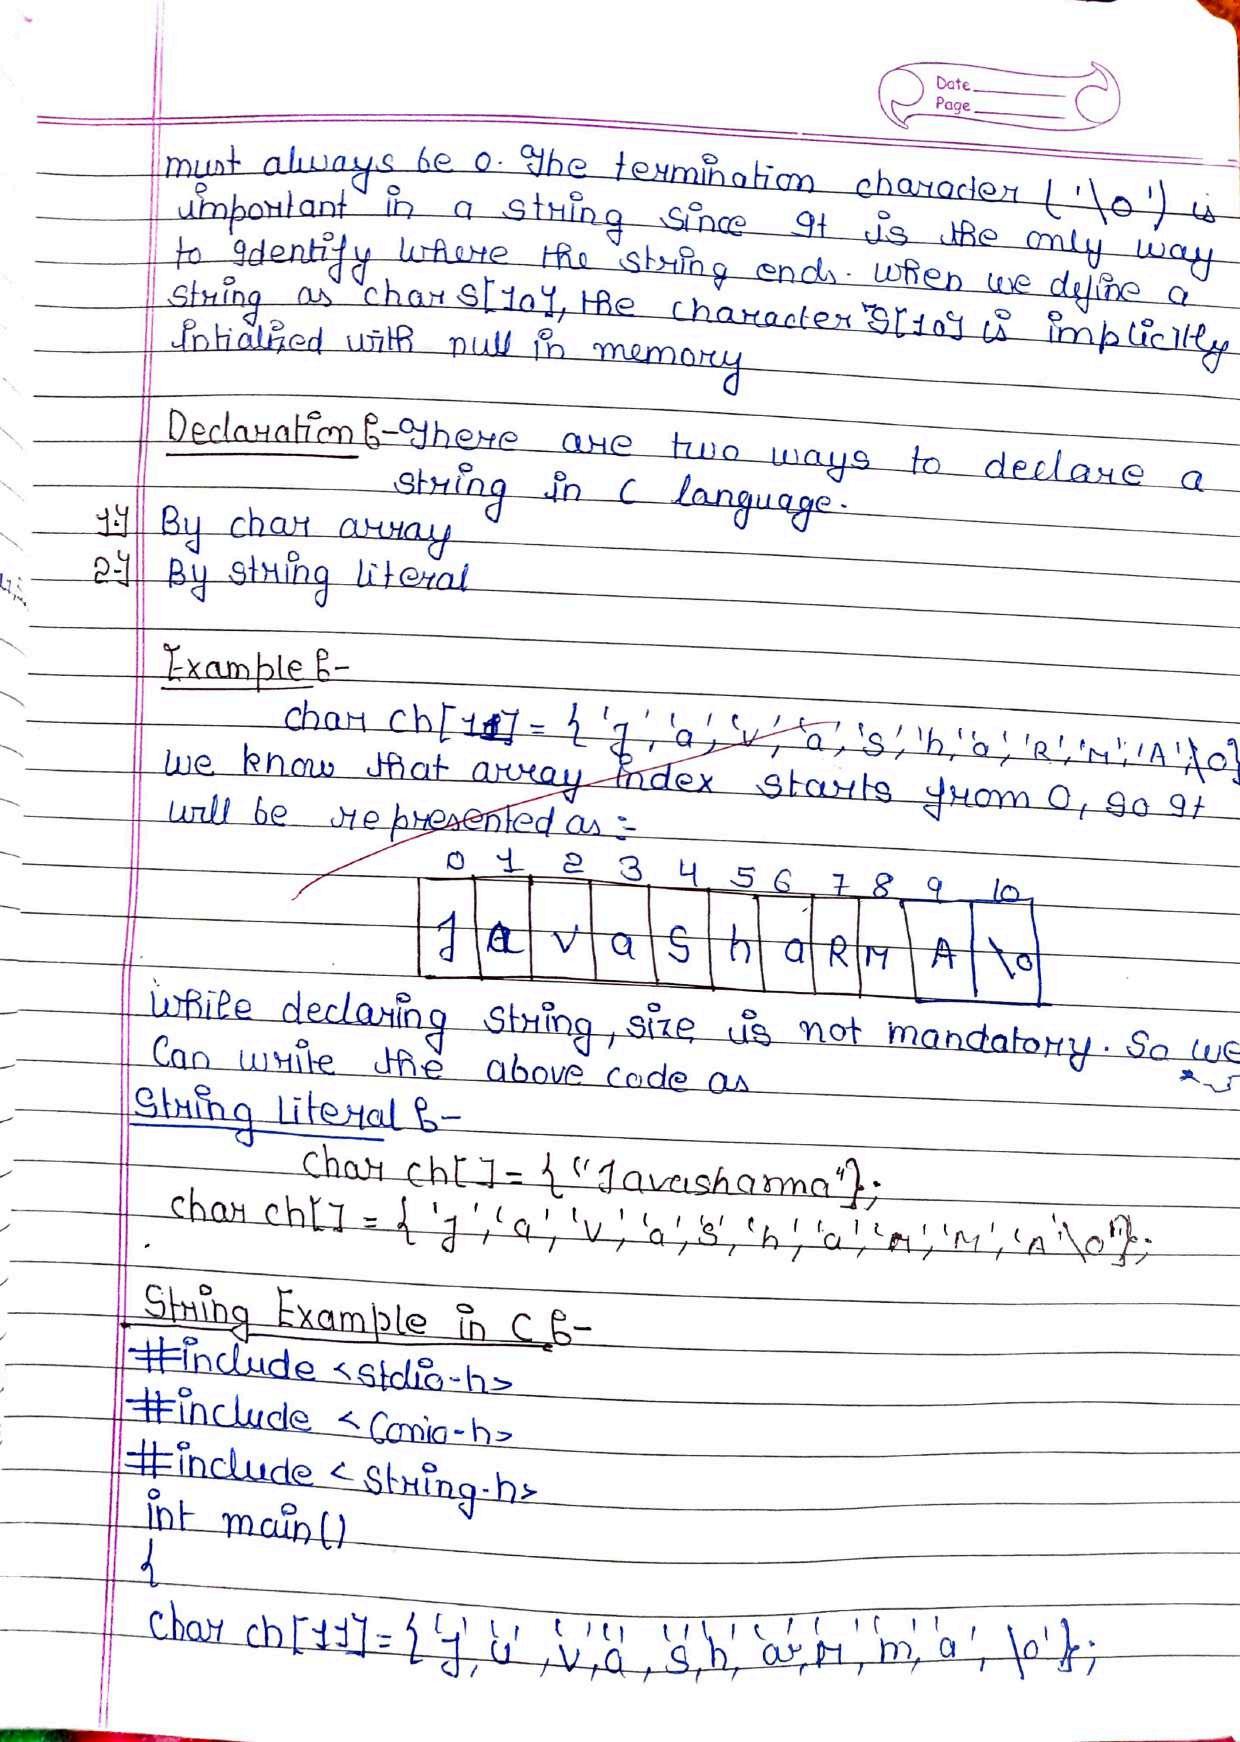 Date
Page
must always be 0. The termination character ('\0') is
important in a string since it is the only way
to identify where the string ends. When we define a
string as char s[10], the character s[10] is implicitly
intialized with null in memory
Declaration :- There are two ways to declare a
string in c language.
1.] By char array
2.] By string literal
Example :-
char ch[11] = {'J','a','v','a','s','h','a','R','M','A'\0}
we know that array index starts from 0, so it
will be represented as :-
0 1 2 3 4 5 6 7 8 9 10
J a v a S h a R M A \0
While declaring string, size is not mandatory. So we
can write the above code as
String Literal :-
char ch[] = {"Javasharma"};
char ch[] = {'J','a','v','a','s','h','a','r','M','A'\0'};
String Example in C :-
#include <stdio.h>
#include <Conio.h>
#include <string.h>
int main()
{
char ch[11] = {'J','a','v','a','s','h','a','r','m','a','\0'};